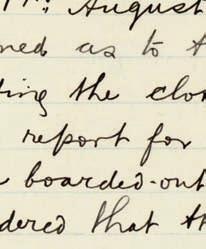 August
ned as to
ting the clo
report for
boarded-out
dered that th